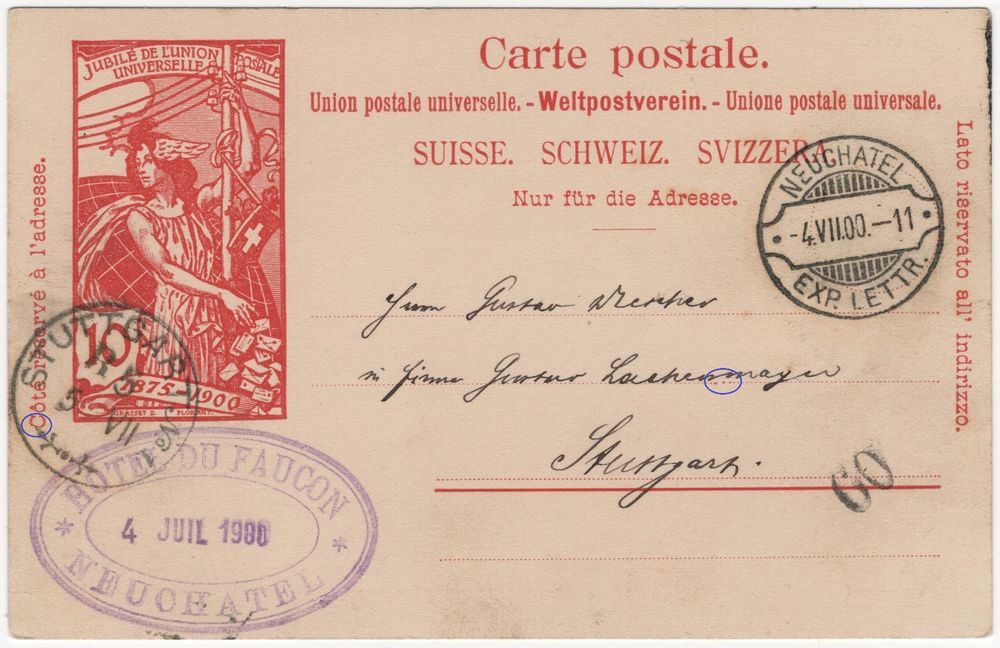 JUBILÉ DE L'UNION POSTALE
UNIVERSELLE
10
1875-1900
GRASSET D. FLORIAN
Côté réservé à l'adresse.
Carte postale.
Union postale universelle. - Weltpostverein. - Unione postale universale.
SUISSE. SCHWEIZ. SVIZZERA.
Nur für die Adresse.
Lato riservato all' indirizzo.
NEUCHATEL
-4.VII.00.-11
EXP. LETTR.
Herrn Gustav
in Firma Gustav Lachenmayer
Stuttgart.
60
STUTTGART No 1
5 VII
HOTEL DU FAUCON
4 JUIL 1900
NEUCHATEL